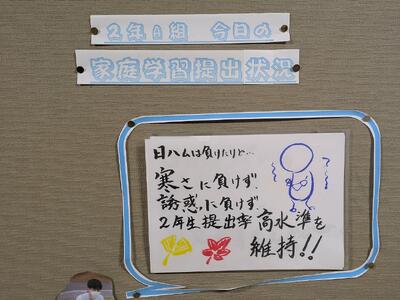 2年A組 今日の
家庭学習提出状況
日ハムは負けたけど…
寒さに負けず、
誘惑に負けず、
2年生提出率高水準を
維持!!